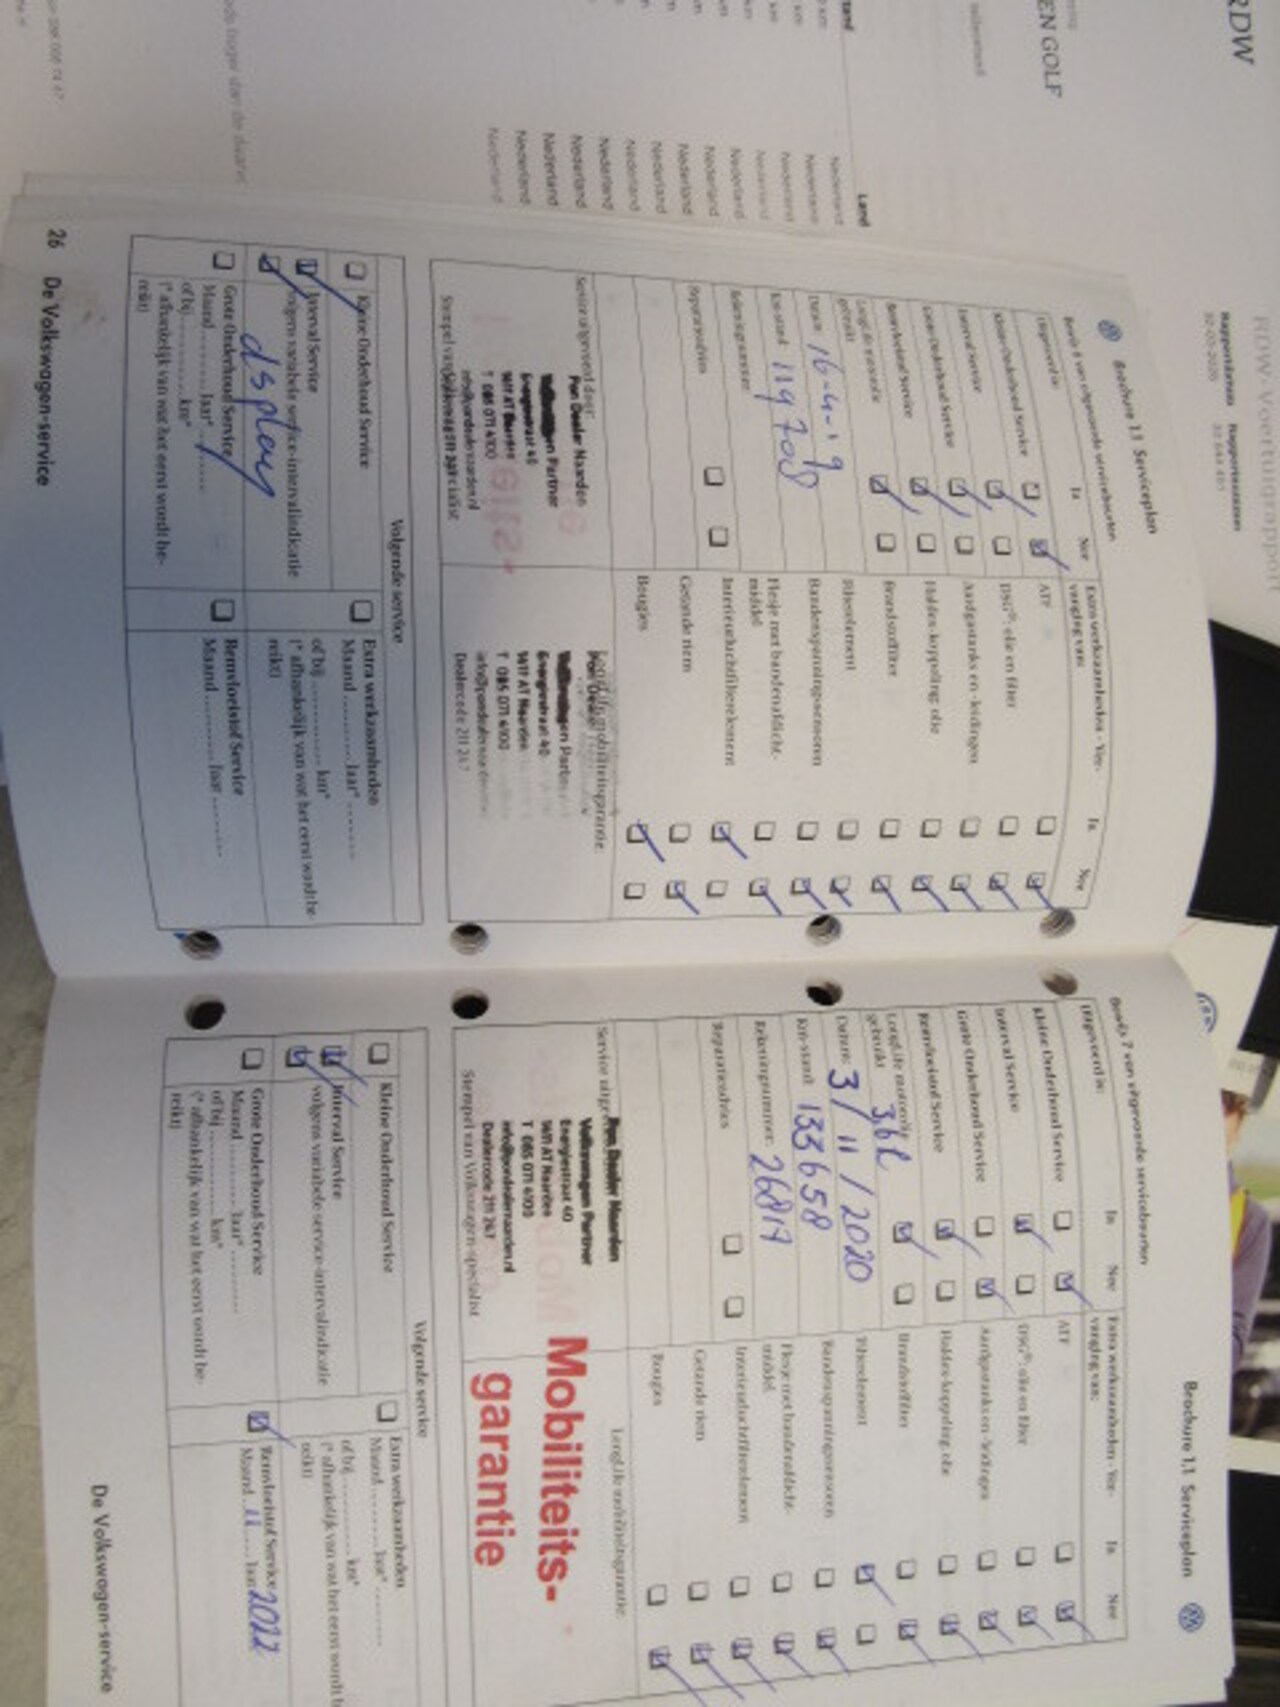 RDW
EN GOLF
RDW-Voertuigrapport
Rapportdatum
Rapportnummer
Land
Nederland
Nederland
Nederland
Nederland
Nederland
Nederland
Nederland
Nederland
Nederland
Nederland
Nederland
Nederland
Nederland
Nederland
Brochure 1.1 Serviceplan
Bewijs 6 van uitgevoerde servicebeurten
Uitgevoerd is:
Ja
Nee
Kleine Onderhoud Service
Interval Service
Grote Onderhoud Service
Remvloeistof Service
LongLife motorolie
gebruikt
Datum: 16-4-19
Km-stand: 119708
Rekeningnummer:
Reparatieadvies
Extra werkzaamheden - Ver-
vanging van:
Ja
Nee
ATF
DSG®: olie en filter
Aardgastanks en -leidingen
Haldex-koppeling: olie
Brandstoffilter
Filterelement
Bandenspanningssensoren
Flesje met bandenafdicht-
middel
Interieurluchtfilterelement
Getande riem
Bougies
Service uitgevoerd door:
Pon Dealer Naarden
Volkswagen Partner
Energiestraat 40
1411 AT Naarden
T 085 071 4100
info@pondealernaarden.nl
LongLife mobiliteitsgarantie:
Pon Dealer
Volkswagen Partner
Energiestraat 40
1411 AT Naarden
T 085 071 4100
Dealercode 211 247
Volgende service
Kleine Onderhoud Service
Interval Service
volgens variabele service-intervalindicatie
display
Grote Onderhoud Service
Maand ........ Jaar* ........
of bij ........ km*
(* afhankelijk van wat het eerst wordt be-
reikt)
Extra werkzaamheden
Maand ........ Jaar* ........
of bij ........ km*
(* afhankelijk van wat het eerst wordt be-
reikt)
Remvloeistof Service
Maand ........ Jaar ........
26 De Volkswagen-service
Brochure 1.1 Serviceplan
Bewijs 7 van uitgevoerde servicebeurten
Uitgevoerd is:
Ja
Nee
Kleine Onderhoud Service
Interval Service
Grote Onderhoud Service
Remvloeistof Service
LongLife motorolie
gebruikt
3,6 l
Datum: 3/11/2020
Km-stand: 133658
Rekeningnummer: 26817
Reparatieadvies
Extra werkzaamheden - Ver-
vanging van:
Ja
Nee
ATF
DSG®: olie en filter
Aardgastanks en -leidingen
Haldex-koppeling: olie
Brandstoffilter
Filterelement
Bandenspanningssensoren
Flesje met bandenafdicht-
middel
Interieurluchtfilterelement
Getande riem
Bougies
Service uitgevoerd
Pon Dealer Naarden
Volkswagen Partner
Energiestraat 40
1411 AT Naarden
T 085 071 4100
info@pondealernaarden.nl
Dealercode 211 247
Stempel van Volkswagen-specialist
LongLife mobiliteitsgarantie:
Mobiliteits-
garantie
Volgende service
Kleine Onderhoud Service
Interval Service
volgens variabele service-intervalindicatie
Grote Onderhoud Service
Maand ........ Jaar* ........
of bij ........ km*
(* afhankelijk van wat het eerst wordt be-
reikt)
Extra werkzaamheden
Maand ........ Jaar* ........
of bij ........ km*
(* afhankelijk van wat het eerst wordt b
reikt)
Remvloeistof Service
Maand 11 Jaar 2022
De Volkswagen-service